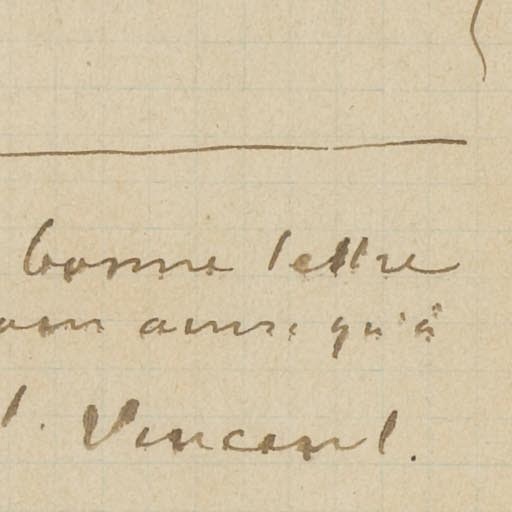 bonne lettre
ainsi qu'à
t. Vincent.